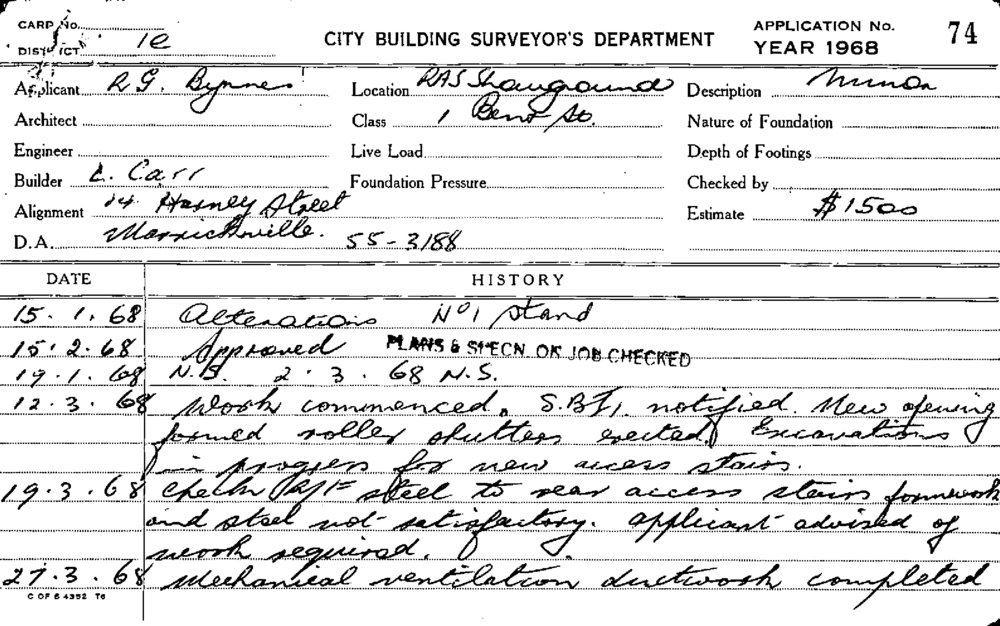 CARD No.
DISTRICT 1e
CITY BUILDING SURVEYOR'S DEPARTMENT
APPLICATION No. 74
YEAR 1968
Applicant R G. Byrnes
Location RAS Showground
Description Minor
Architect
Class 1 Bent St.
Nature of Foundation
Engineer
Live Load
Depth of Footings
Builder L. Carr
Foundation Pressure
Checked by
Alignment 14 Harney Street
Estimate $1500
D.A. Marrickville. 55-3188
DATE HISTORY
15.1.68 Alterations No 1 Stand
15.2.68 Approved PLANS & SPECN. ON JOB CHECKED
19.1.68 N.S. 2.3.68 N.S.
12.3.68 Work commenced. notified. New opening
formed roller shutters erected. Excavations
in progress for new access stairs.
19.3.68 Check steel to rear access stairs formwork
and steel not satisfactory. applicant advised of
work required.
27.3.68 Mechanical ventilation ductwork completed
C OF S 4352 T6